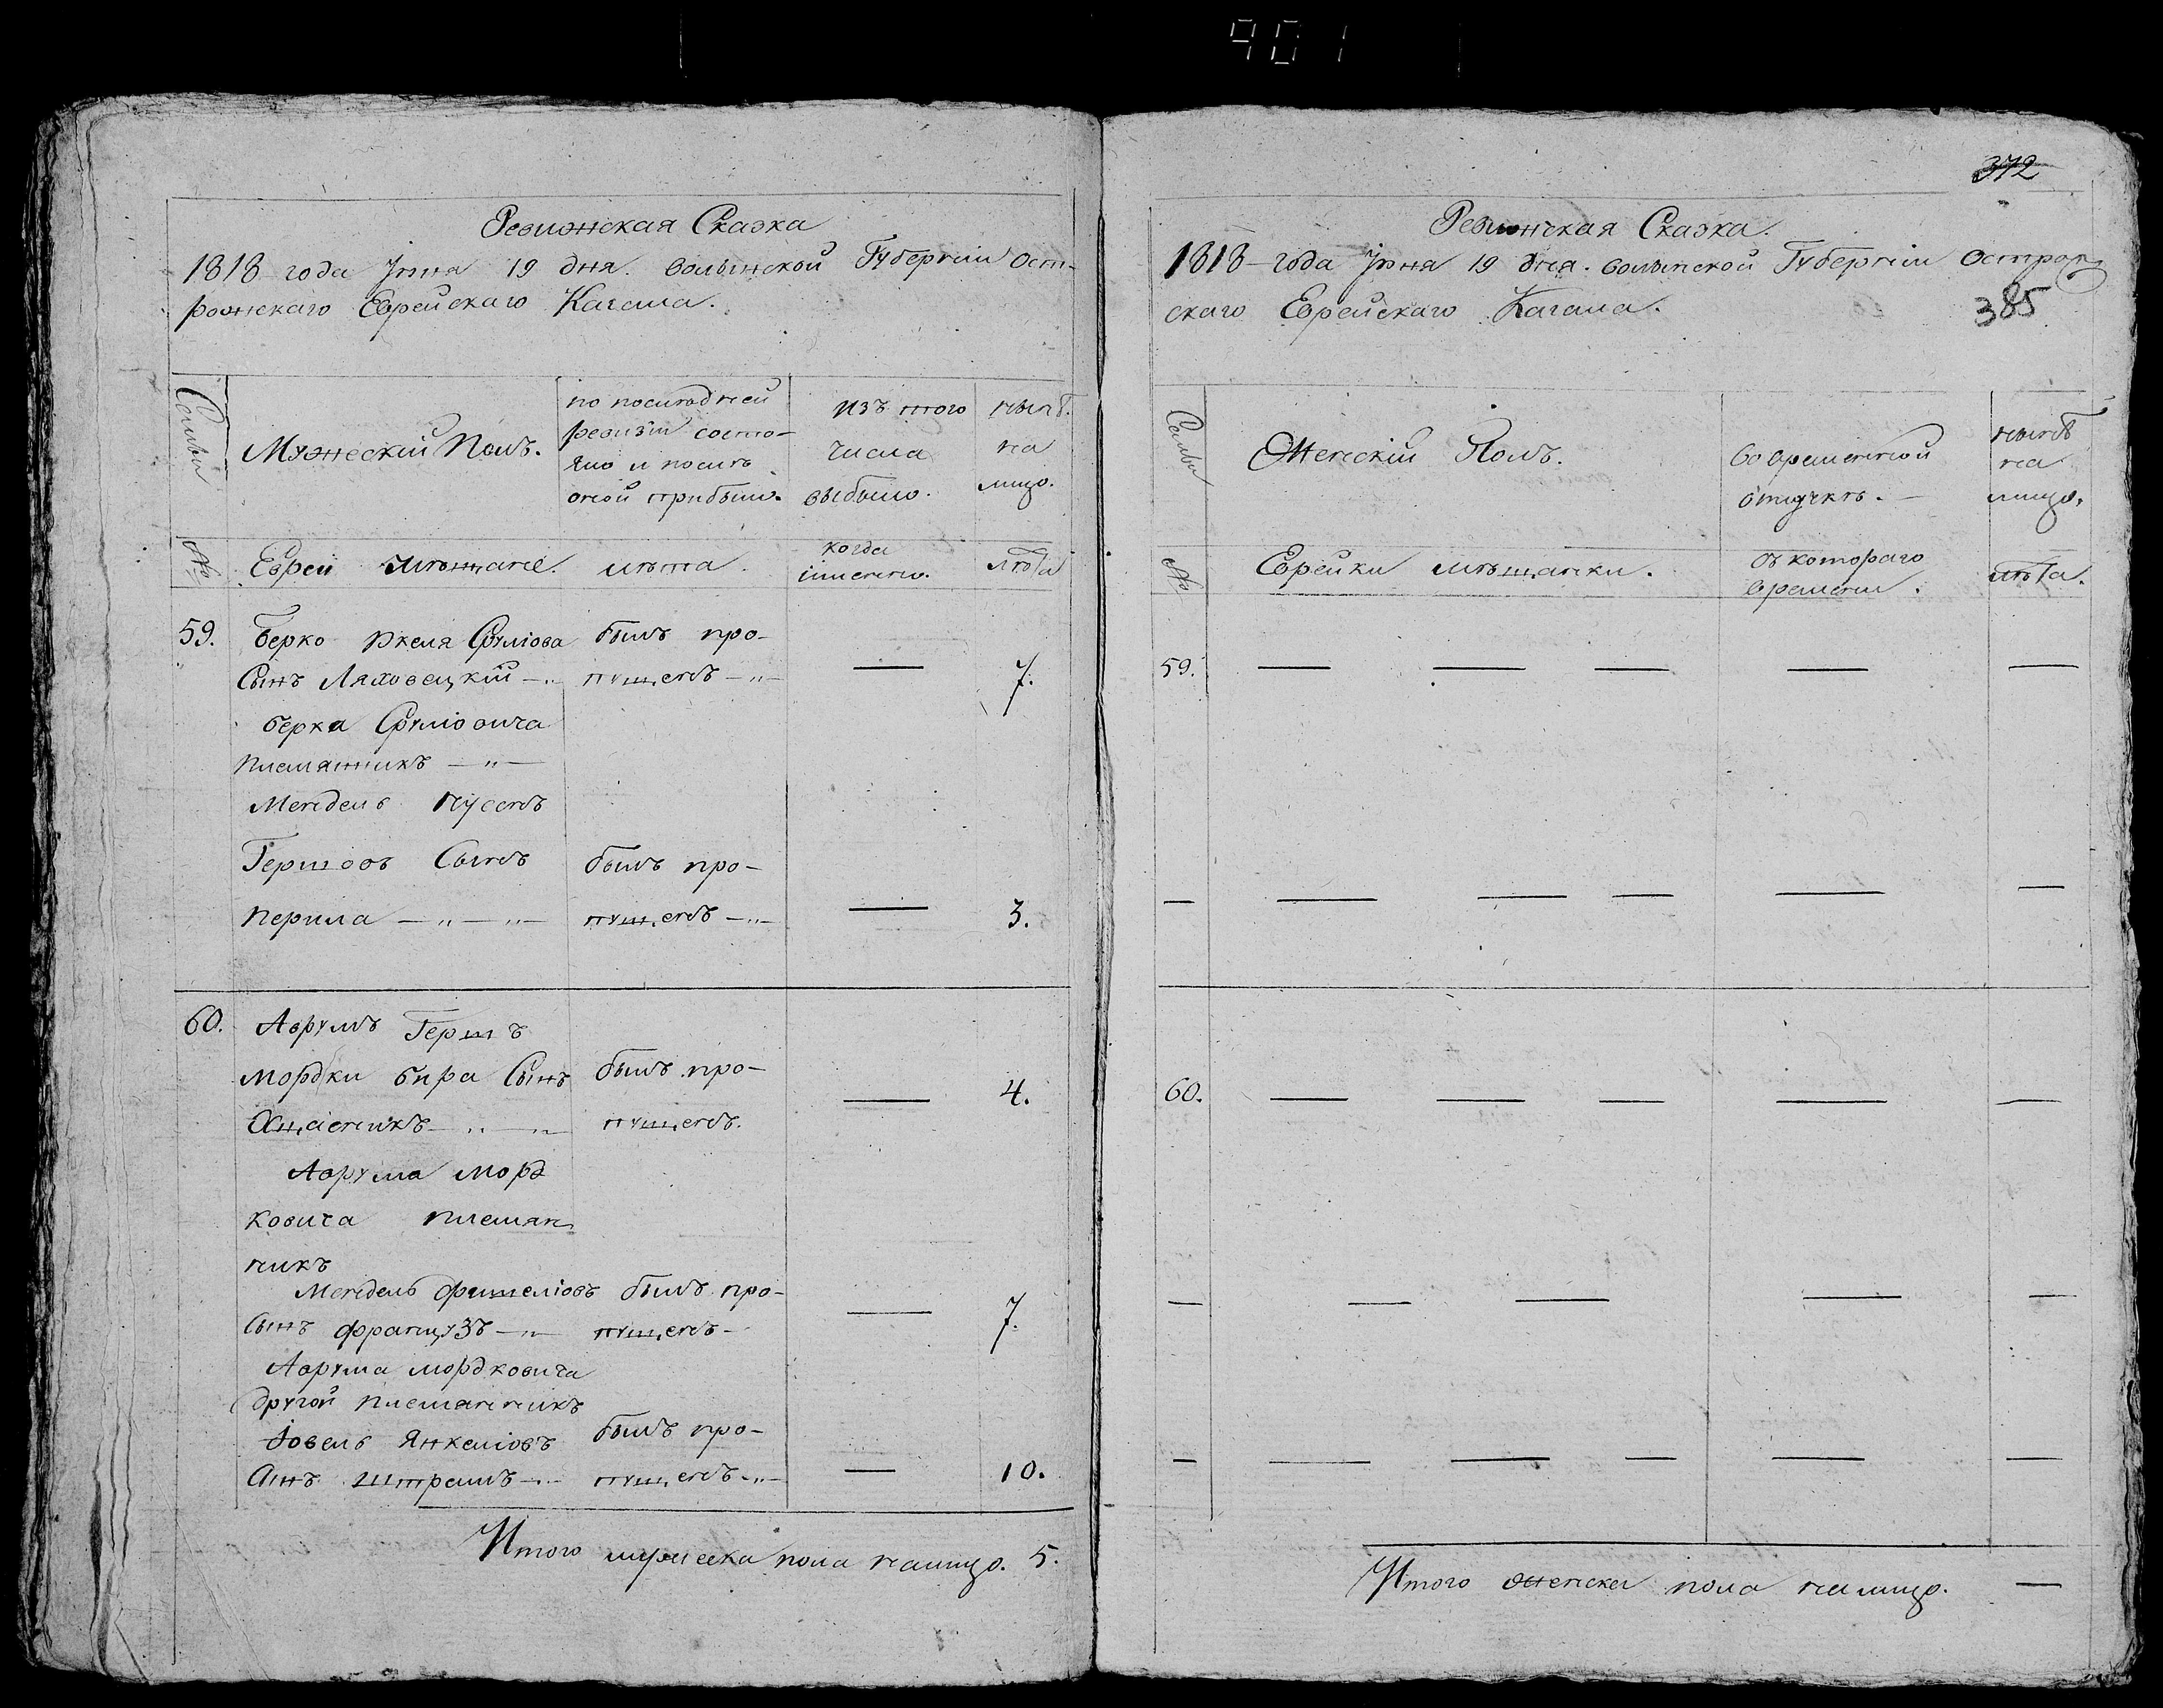 901
Ревижская Сказка
1818 года Июня 19 дня. волынской Губерніи Ост-
рожскаго Еврейскаго Кагала.
Семьи
Мужескій Полъ.
по последней
ревизіи состо-
яло и после
оной прибыло.
изъ того
числа
выбыло.
нынѣ
на
лицо.
№
Евреи мѣщане.
лѣта.
когда
имменно.
лѣта
59. Берко Икеля Сруліова былъ про-
Сынъ Ляховецкій —„ пущенъ —„— — 7.
берка Сруліовича
племянникъ —„—
Мендель Нусенъ
Гершовъ Сынъ былъ про-
перила —„—„— пущенъ —„— — 3.
60. Аврумъ Гершъ
Мордки бира Сынъ былъ про- — 4.
пущенъ.
Аврума Морд
ковича племян
никъ
Мендель фишеліовъ былъ про- — 7.
Сынъ французъ —„— пущенъ —
Аврума мордковича
другой племянникъ
Іовель Янкеліовъ былъ про-
Сынъ Штрамъ —„— пущенъ —„— — 10.
Итого мужеска пола налицо. 5.
372
Ревижская Сказка.
1818 года Июня 19 дня. волынской Губерніи Острож
скаго Еврейскаго Кагала.
385
Семьи
Женскій Полъ.
во временной
отлучкѣ. —
нынѣ
на
лицо.
№
Еврейки мѣщанки.
съ котораго
времени.
лѣта.
59. — — — — —
— — — — — —
60. — — — — —
— — — — —
— — — — — —
Итого женска пола налицо. —